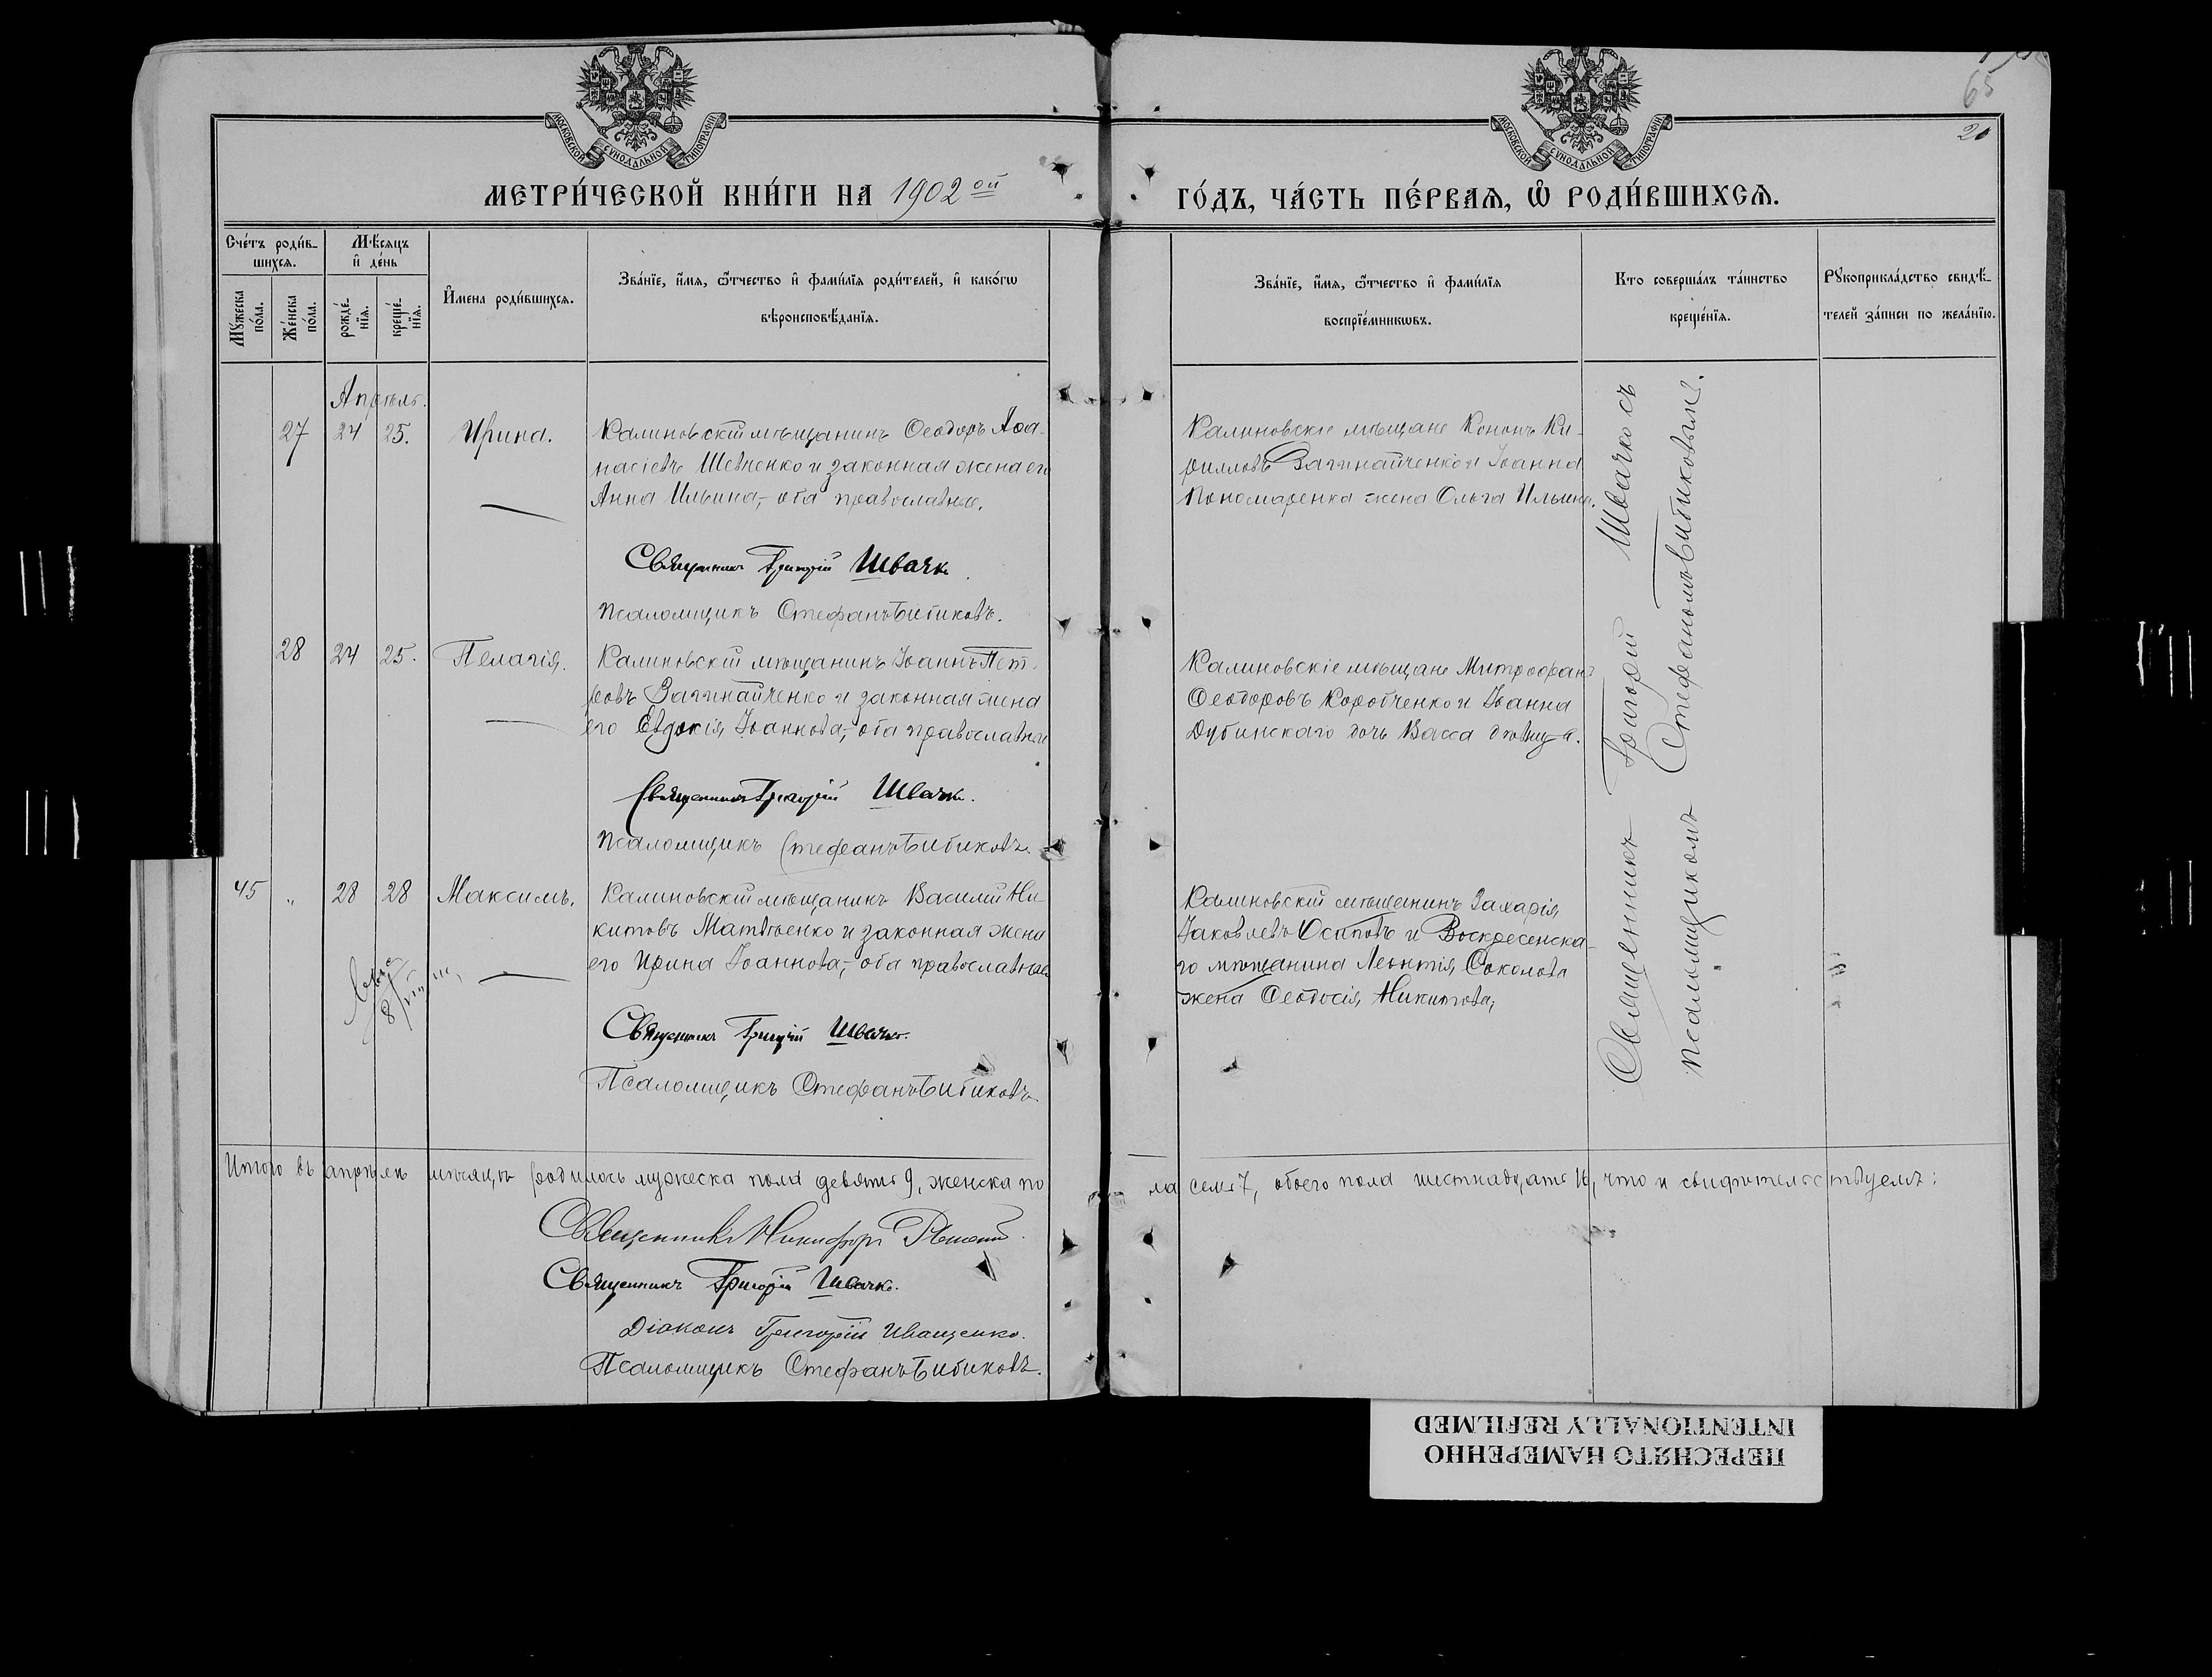 МОСКОВСКОЙ СУНОДАЛЬНОЙ ТИПОГРАФІИ
МОСКОВСКОЙ СУНОДАЛЬНОЙ ТИПОГРАФІИ
65
20
МЕТРИ́ЧЕСКОЙ КНИ́ГИ НА 1902 ой
ГО́ДЪ, ЧА́СТЬ ПЕ́РВАѦ, Ѡ҆ РОДИ́ВШИХСѦ.
Сче́тъ роди́в-
шихсѧ.
Мѣ́сѧцъ
и҆ де́нь
Мꙋ́жеска
по́ла.
Же́нска
по́ла.
рожде́-
нїѧ.
креще́-
нїѧ.
И҆мена роди́вшихсѧ.
Зва́нїе, и҆́мѧ, ѻ҆́тчество и҆ фами́лїѧ роди́телей, и҆ како́гѡ
вѣроисповѣ́данїѧ.
Зва́нїе, и҆́мѧ, ѻ҆́тчество и҆ фами́лїѧ
воспрїе́мникѡвъ.
Кто соверша́лъ та́инство
креще́нїѧ.
Рꙋкоприкла́дство свидѣ́-
телей за́писи по жела́нїю.
Апрѣль.
27 24 25. Ирина.
Калиновскій мѣщанинъ Ѳеодоръ Аѳа-
насіевъ Шевченко и законная жена его
Анна Ильина,- оба православные.
Священникъ Григорій Швачко
Псаломщикъ Стефанъ Бибиковъ.
Калиновскіе мѣщане Кононъ Ки-
рилловъ Вагинайченко и Іоанна
Пономаренка жена Ольга Ильина.
28 24 25. Пелагія.
Калиновскій мѣщанинъ Іоаннъ Пет-
ровъ Вагинайченко и законная жена
его Евдокія Іоаннова,- оба православные
Священникъ Григорій Швачко.
Псаломщикъ Стефанъ Бибиковъ.
Калиновскіе мѣщане Митрофанъ
Ѳеодоровъ Коробченко и Іоанна
Дубинскаго дочь Васса дѣвица.
45 " 28 28 Максимъ.
Калиновскій мѣщанинъ Василій Ни-
китовъ Матвѣенко и законная жена
его Ирина Іоаннова,- оба православные
Священникъ Григорій Швачко.
Псаломщикъ Стефанъ Бибиковъ.
Калиновскій мѣщанинъ Захарія
Іаковлевъ Осиповъ и Воскресенска-
го мѣщанина Леонтія Соколова
жена Ѳеодосія Никитова,
Священникъ Григорій Швачко съ
псаломщикомъ Стефаномъ Бибиковымъ.
Итого въ апрѣлѣ мѣсяцѣ родилось мужеска пола девять 9, женска по
ла семь 7, обоего пола шестнадцать 16, что и свидѣтельствуемъ:
Священникъ Никифоръ
Священникъ Григорій Швачко.
Діаконъ Григорій Иващенко.
Псаломщикъ Стефанъ Бибиковъ.
ПЕРЕСНЯТО НАМЕРЕННО
INTENTIONALLY REFILMED